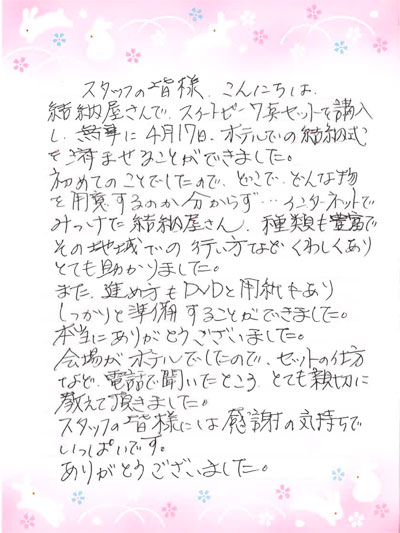 スタッフの皆様、こんにちは。
結納屋さんで、スイートピー7点セットを購入
し、無事に4月17日、ホテルでの結納式
を済ませることができました。
初めてのことでしたので、どこで、どんな物
を用意するのか分からず…インターネットで
みつけた結納屋さん、種類も豊富で
その地域での行い方などくわしくあり
とても助かりました。
また、進め方もDVDと用紙もあり
しっかりと準備することができました。
本当にありがとうございました。
会場がホテルでしたので、セットの仕方
など、電話で聞いたところ、とても親切に
教えて頂きました。
スタッフの皆様には感謝の気持ちで
いっぱいです。
ありがとうございました。